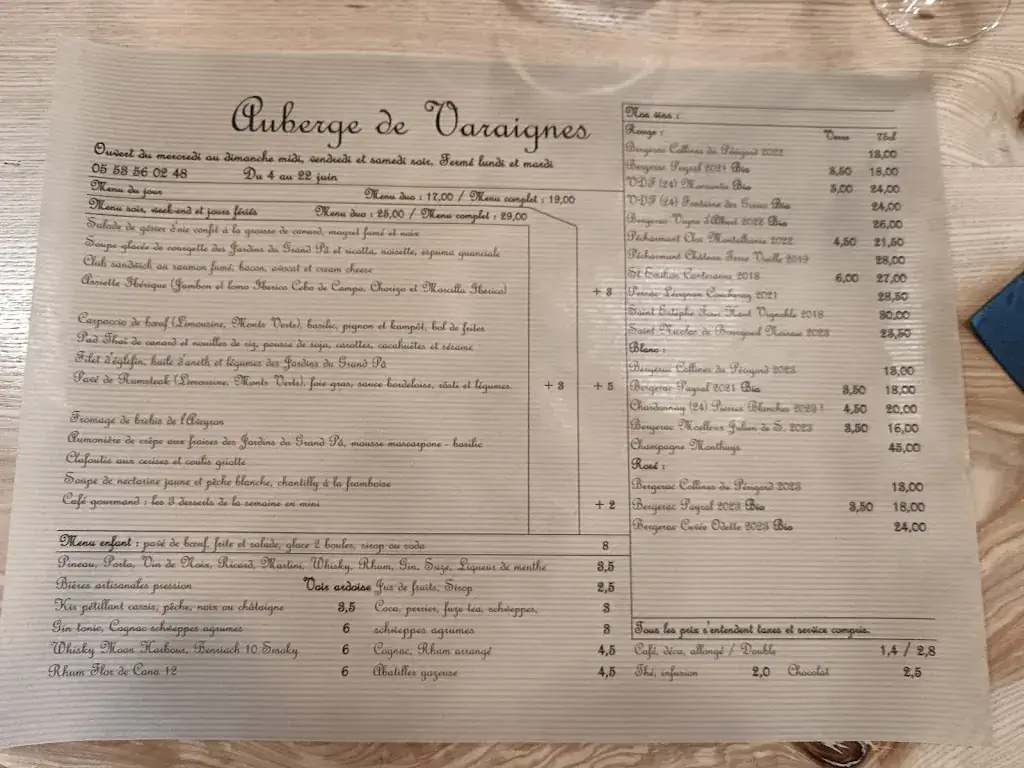 Auberge de Varaignes
Ouvert du mercredi au dimanche midi, vendredi et samedi soir, Fermé lundi et mardi
05 58 56 02 48 Du 4 au 22 juin
Menu du jour Menu duo : 17,00 / Menu complet : 19,00
Menu soir, week-end et jours fériés Menu duo : 25,00 / Menu complet : 29,00
Salade de gésier d'oie confit à la graisse de canard, magret fumé et noix
Soupe glacée de courgette des Jardins du Grand Pâ et ricotta, noisette, espuma guanciale
Club sandwich au saumon fumé, bacon, avocat et cream cheese
Assiette Ibérique (Jambon et lomo Iberico Cebo de Campo, Chorizo et Morcilla Iberico) + 3
Carpaccio de bœuf (Limousine, Monts Verts), basilic, pignon et kampôt, bol de frites
Pad Thaï de canard et nouilles de riz, pousse de soja, carottes, cacahuètes et sésame
Filet d'églefin, huile d'aneth et légumes des Jardins du Grand Pâ
Pavé de Rumsteak (Limousine, Monts Verts), foie gras, sauce bordelaise, rösti et légumes + 3 + 5
Fromage de brebis de l'Aveyron
Aumonière de crêpe aux fraises des Jardins du Grand Pâ, mousse mascarpone - basilic
Clafoutis aux cerises et coulis griotte
Soupe de nectarine jaune et pêche blanche, chantilly à la framboise
Café gourmand : les 3 desserts de la semaine en mini + 2
Menu enfant : pavé de bœuf, frite et salade, glace 2 boules, sirop ou soda 8
Pineau, Porto, Vin de Noix, Ricard, Martini, Whisky, Rhum, Gin, Suze, Liqueur de menthe 3,5
Bières artisanales pression Voir ardoise Jus de fruits, Sirop 2,5
Kir pétillant cassis, pêche, noix ou châtaigne 3,5 Coca, perrier, fuze tea, schweppes, 3
Gin tonic, Cognac schweppes agrumes 6 schweppes agrumes 3
Whisky Moon Harbour, Benriach 10 Smoky 6 Cognac, Rhum arrangé 4,5
Rhum Flor de Cana 12 6 Abatilles gazeuse 4,5
Nos vins :
Rouge : Verre 75cl
Bergerac Collines du Périgord 2022 13,00
Bergerac Payral 2021 Bio 3,50 18,00
VDF (24) Bio 5,00 24,00
VDF (24) Fontaine des Bio 24,00
Bergerac Vigne d'Albert 2022 Bio 26,00
Pécharmant Clos Montalbanie 2022 4,50 21,50
Pécharmant Château Terre Vieille 2019 28,00
St Emilion 2018 6,00 27,00
Pessac Léognan 2021 28,50
Saint Estèphe Haut Vignoble 2018 30,00
Saint Nicolas de Bourgueil 2023 23,50
Blanc :
Bergerac Collines du Périgord 2023 13,00
Bergerac Payral 2021 Bio 3,50 18,00
Chardonnay (24) Pierres Blanches 2023 ! 4,50 20,00
Bergerac Moelleux Julien de S. 2023 3,50 16,00
Champagne Monthuys 45,00
Rosé :
Bergerac Collines du Périgord 2023 13,00
Bergerac Payral 2023 Bio 3,50 18,00
Bergerac Cuvée Odette 2023 Bio 24,00
Tous les prix s'entendent taxes et service compris.
Café, déca, allongé / Double 1,4 / 2,8
Thé, infusion 2,0 Chocolat 2,5